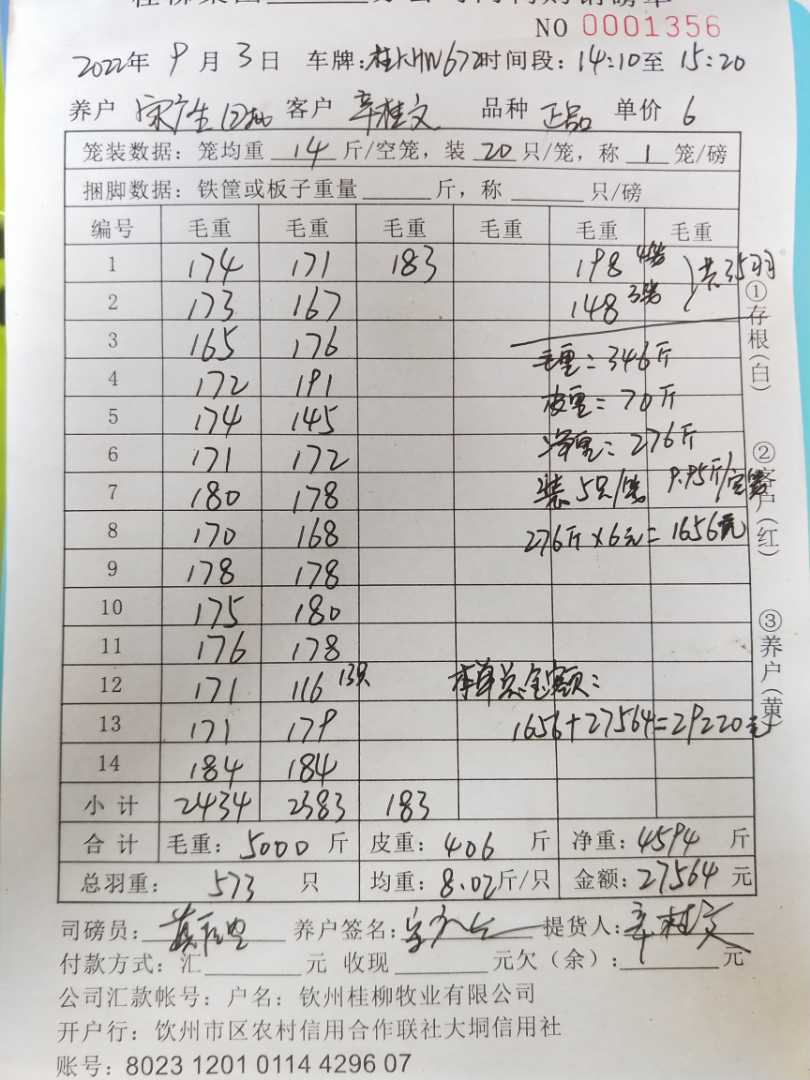 NO 0001356
2022年 9月 3日 车牌:桂KHW672时间段:14:10至 15:20
养户 宋广生 客户 辛桂文 品种 正品 单价 6
笼装数据:笼均重 14 斤/空笼,装 20 只/笼,称 1 笼/磅
捆脚数据:铁筐或板子重量 斤,称 只/磅
编号 毛重 毛重 毛重 毛重 毛重 毛重
1 174 171 183 198 4笼 共35羽
2 173 167 148 3笼
3 165 176
毛重=346斤
4 172 191
皮重=70斤
5 174 145
净重=276斤
6 171 172
7 180 178 装5只/笼 9.95斤/空笼
8 170 168 276斤×6元=1656元
9 178 178
10 175 180
11 176 178
12 171 116 13只 本单总金额:
13 171 179 1656+27564=29220元
14 184 184
小计 2434 2383 183
合计 毛重:5000斤 皮重:406斤 净重:4594斤
总羽重:573只 均重:8.02斤/只 金额:27564元
①存根(白)
②客户(红)
③养户(黄)
司磅员: 养户签名: 提货人:辛桂文
付款方式:汇 元 收现 元欠(余): 元
公司汇款帐号:户名:钦州桂柳牧业有限公司
开户行:饮州市区农村信用合作联社大垌信用社
账号:8023 1201 0114 4296 07